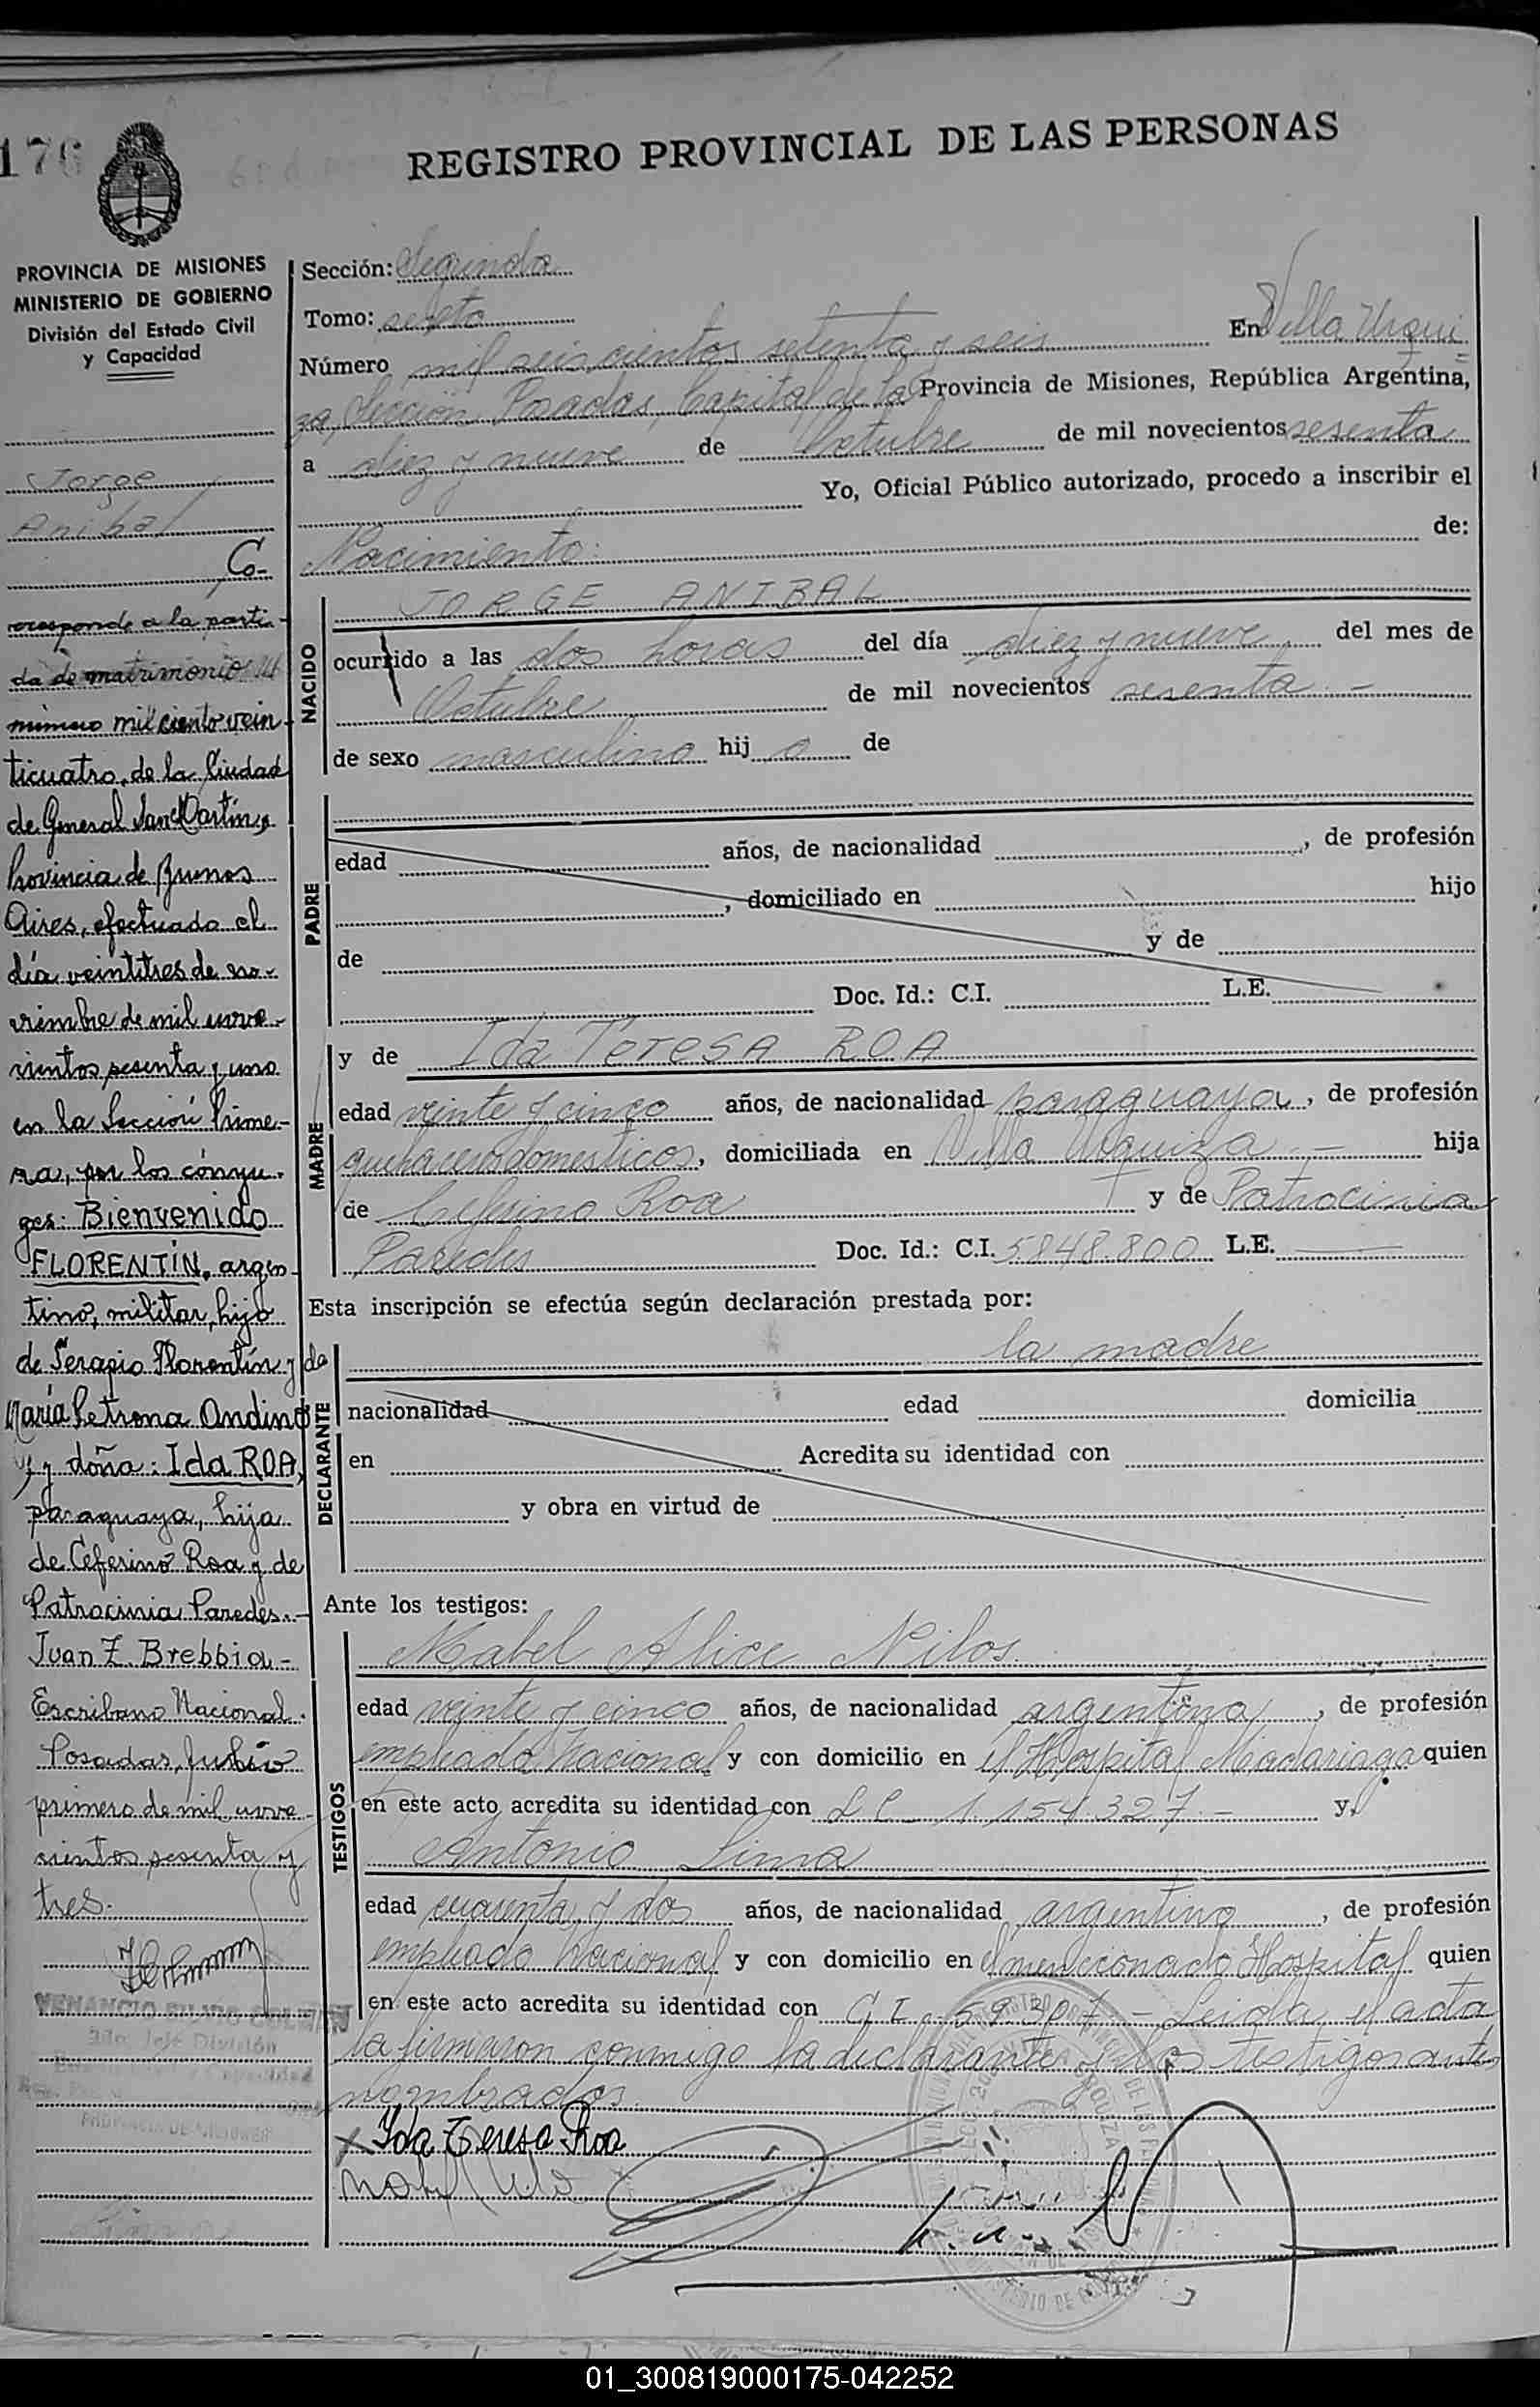 176
REGISTRO PROVINCIAL DE LAS PERSONAS
PROVINCIA DE MISIONES
MINISTERIO DE GOBIERNO
División del Estado Civil
y Capacidad
Jorge
Anibal
Co-
rresponde a la parti-
da de matrimonio
número mil ciento vein
ticuatro, de la Ciudad
de General San Martín,
Provincia de Buenos
Aires, efectuado el
día veintitres de no-
viembre de mil nove-
cientos sesenta y uno
en la Sección Prime-
ra, por los cónyu-
ges: Bienvenido
FLORENTÍN, argen-
tino, militar, hijo
de Serapio Florentín y de
María Petrona Andino
y doña: Ida ROA,
paraguaya, hija
de Ceferino Roa y de
Patrocinia Paredes.-
Juan Z. Brebbia-
Escribano Nacional.
Posadas, Julio
primero de mil nove-
cientos sesenta y
tres.
Sección: Segunda
Tomo: sexto
Número mil seiscientos setenta y seis En Villa Urqui
za, Sección Posadas, Capital de la Provincia de Misiones, República Argentina,
a diez y nueve de Octubre de mil novecientos sesenta
Yo, Oficial Público autorizado, procedo a inscribir el
Nacimiento: de:
NACIDO
JORGE ANIBAL
ocurrido a las dos horas del día diez y nueve del mes de
Octubre de mil novecientos sesenta.-
de sexo masculino hij o de
PADRE
edad años, de nacionalidad , de profesión
, domiciliado en hijo
de y de
Doc. Id.: C.I. L.E.
MADRE
y de Ida Teresa ROA
edad veinte y cinco años, de nacionalidad paraguaya, de profesión
quehaceres domesticos, domiciliada en Villa Urquiza.- hija
de Ceferino Roa y de Patrocinia
Paredes Doc. Id.: C.I. 5848.800 L.E.
Esta inscripción se efectúa según declaración prestada por:
DECLARANTE
la madre
nacionalidad edad domicilia
en Acredita su identidad con
y obra en virtud de
Ante los testigos:
TESTIGOS
Mabel Alice Nilos
edad veinte y cinco años, de nacionalidad argentina, de profesión
empleada nacional y con domicilio en el Hospital Madariaga quien
en este acto acredita su identidad con LC 1.154.327.- y,
Antonio Lima
edad cuarenta y dos años, de nacionalidad argentino, de profesión
empleado nacional y con domicilio en el mencionado Hospital quien
en este acto acredita su identidad con C I. 59.307- Leida el acta
la firmaron conmigo la declarante y los testigos antes
nombrados.
Ida Teresa Roa
01_300819000175-042252